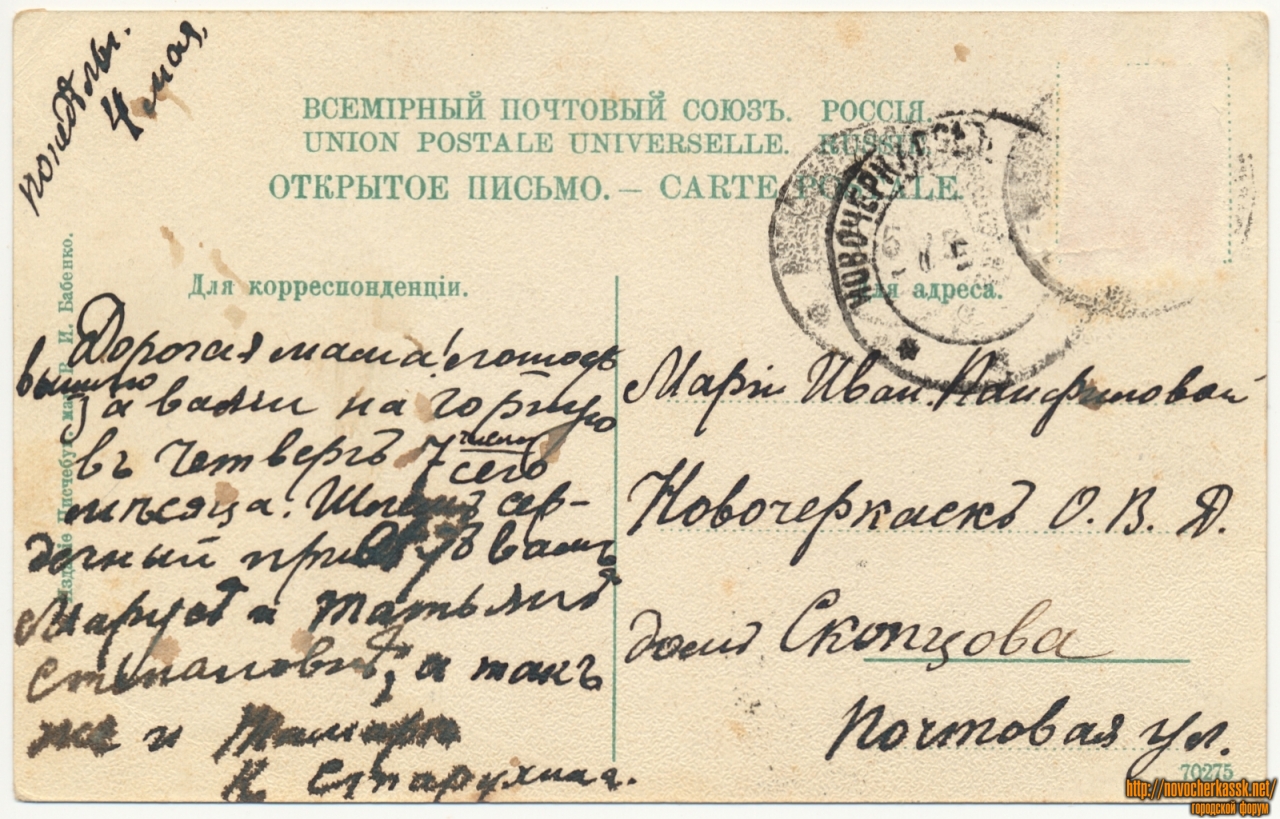 понедѣльн.
4 мая,
ВСЕМІРНЫЙ ПОЧТОВЫЙ СОЮЗЪ. РОССІЯ.
UNION POSTALE UNIVERSELLE. RUSSIE.
ОТКРЫТОЕ ПИСЬМО. — CARTE POSTALE.
НОВОЧЕРКАССКЪ
Для корреспонденціи.
Для адреса.
Дорогая мама! лошадь
вышлю за вами на Горную
въ четвергъ 7 числа сего
мѣсяца. Шлемъ сер-
дечный привѣтъ вамъ
Марусѣ и Татьянѣ
Степановнѣ, а такъ
же и Тамарѣ
К Старухина.
Маріи Иван. Панфиловой
Новочеркаскъ О. В. Д.
домъ Скопцова
Почтовая ул.
Изданіе Писчебум. маг. Р. И. Бабенко.
70275
http://novocherkassk.net/
городской форум